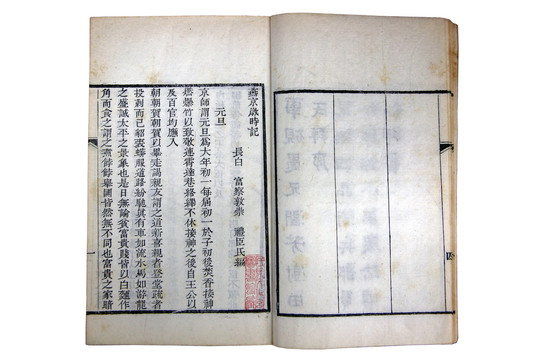 燕京歲時記
長白 富察敦崇 禮臣氏編
元旦
京師謂元旦爲大年初一每屆初一於子初後焚香接神
燃爆竹以致敬連霄達巷絡繹不休接神之後自王公以
及百官均應入
朝朝賀朝賀以畢走謁親友謂之道新喜親者登堂疏者
投刺而已貂裘蟒服道路紛馳真有車如流水馬如游龍
之盛誠太平之景象也是日無論貧富貴賤皆以白麵作
角而食之謂之煮餑餑舉國皆然無不同也富貴之家暗